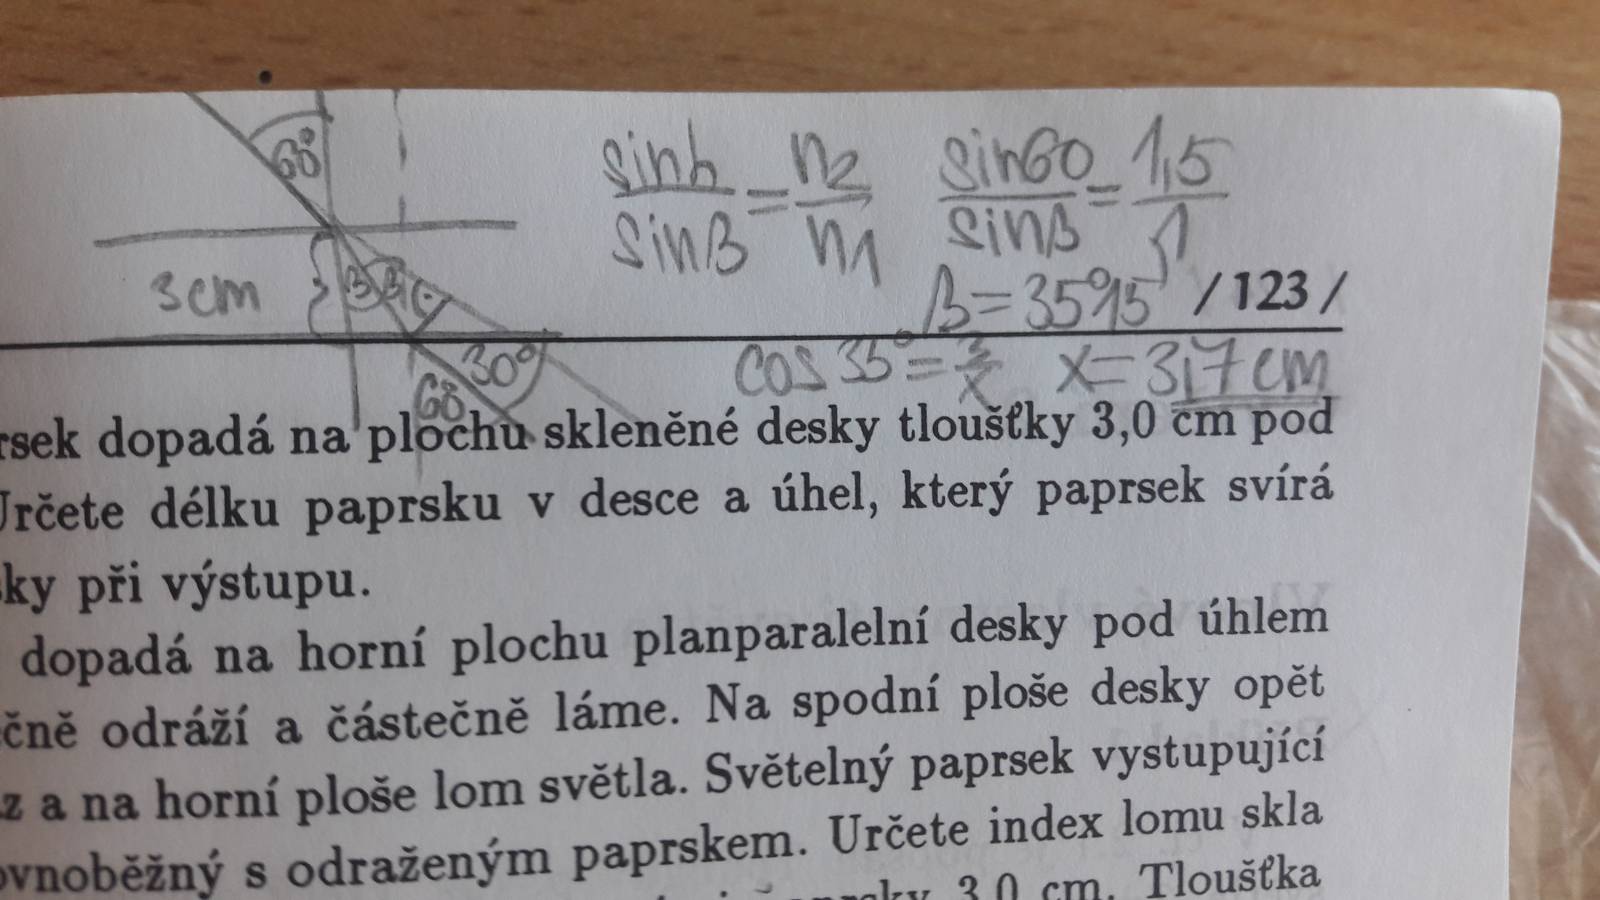 60°
sin h / sin β = n2 / n1 sin 60 / sin β = 1,5 / 1
3cm β β
β = 35°15' /123/
30° cos 35° = 3/x x = 3,7 cm
60
rsek dopadá na plochu skleněné desky tloušťky 3,0 cm pod
Určete délku paprsku v desce a úhel, který paprsek svírá
sky při výstupu.
dopadá na horní plochu planparalelní desky pod úhlem
čně odráží a částečně láme. Na spodní ploše desky opět
z a na horní ploše lom světla. Světelný paprsek vystupující
ovnoběžný s odraženým paprskem. Určete index lomu skla
paprsky 3,0 cm. Tloušťka